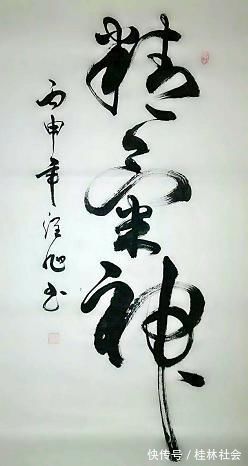 精氣神
丙申年旭书
快传号/桂林社会